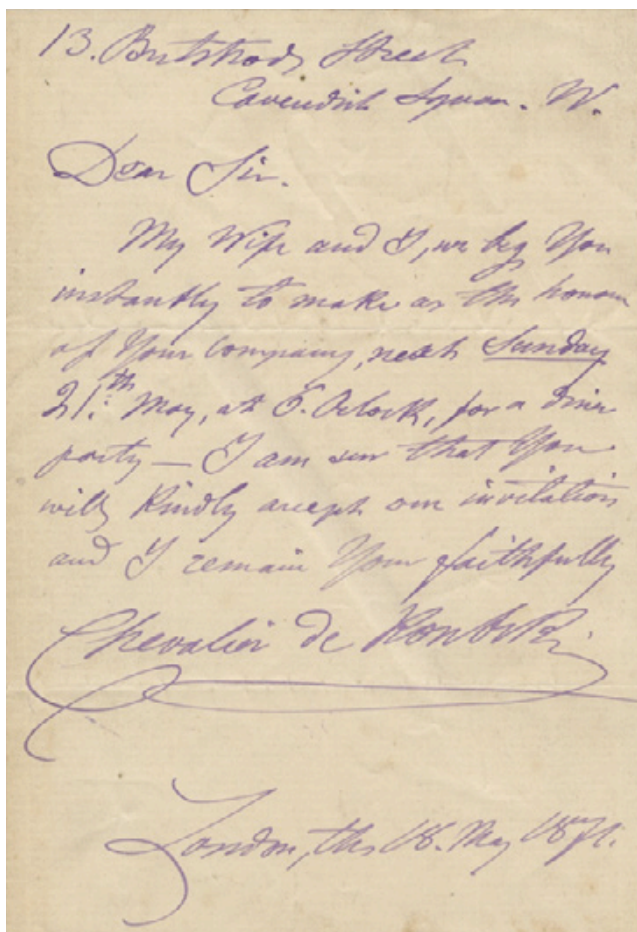 13. Bulstrode Street
Cavendish Square. W.
Dear Sir.
My Wife and I, we beg You
instantly to make us the honour
of Your Company, next Sunday
21.th May, at 6. Oclock, for a diner
party — I am sure that You
will Kindly accept our invitation
and I remain Your faithfully
Chevalier de
London, the 18. May 1871.